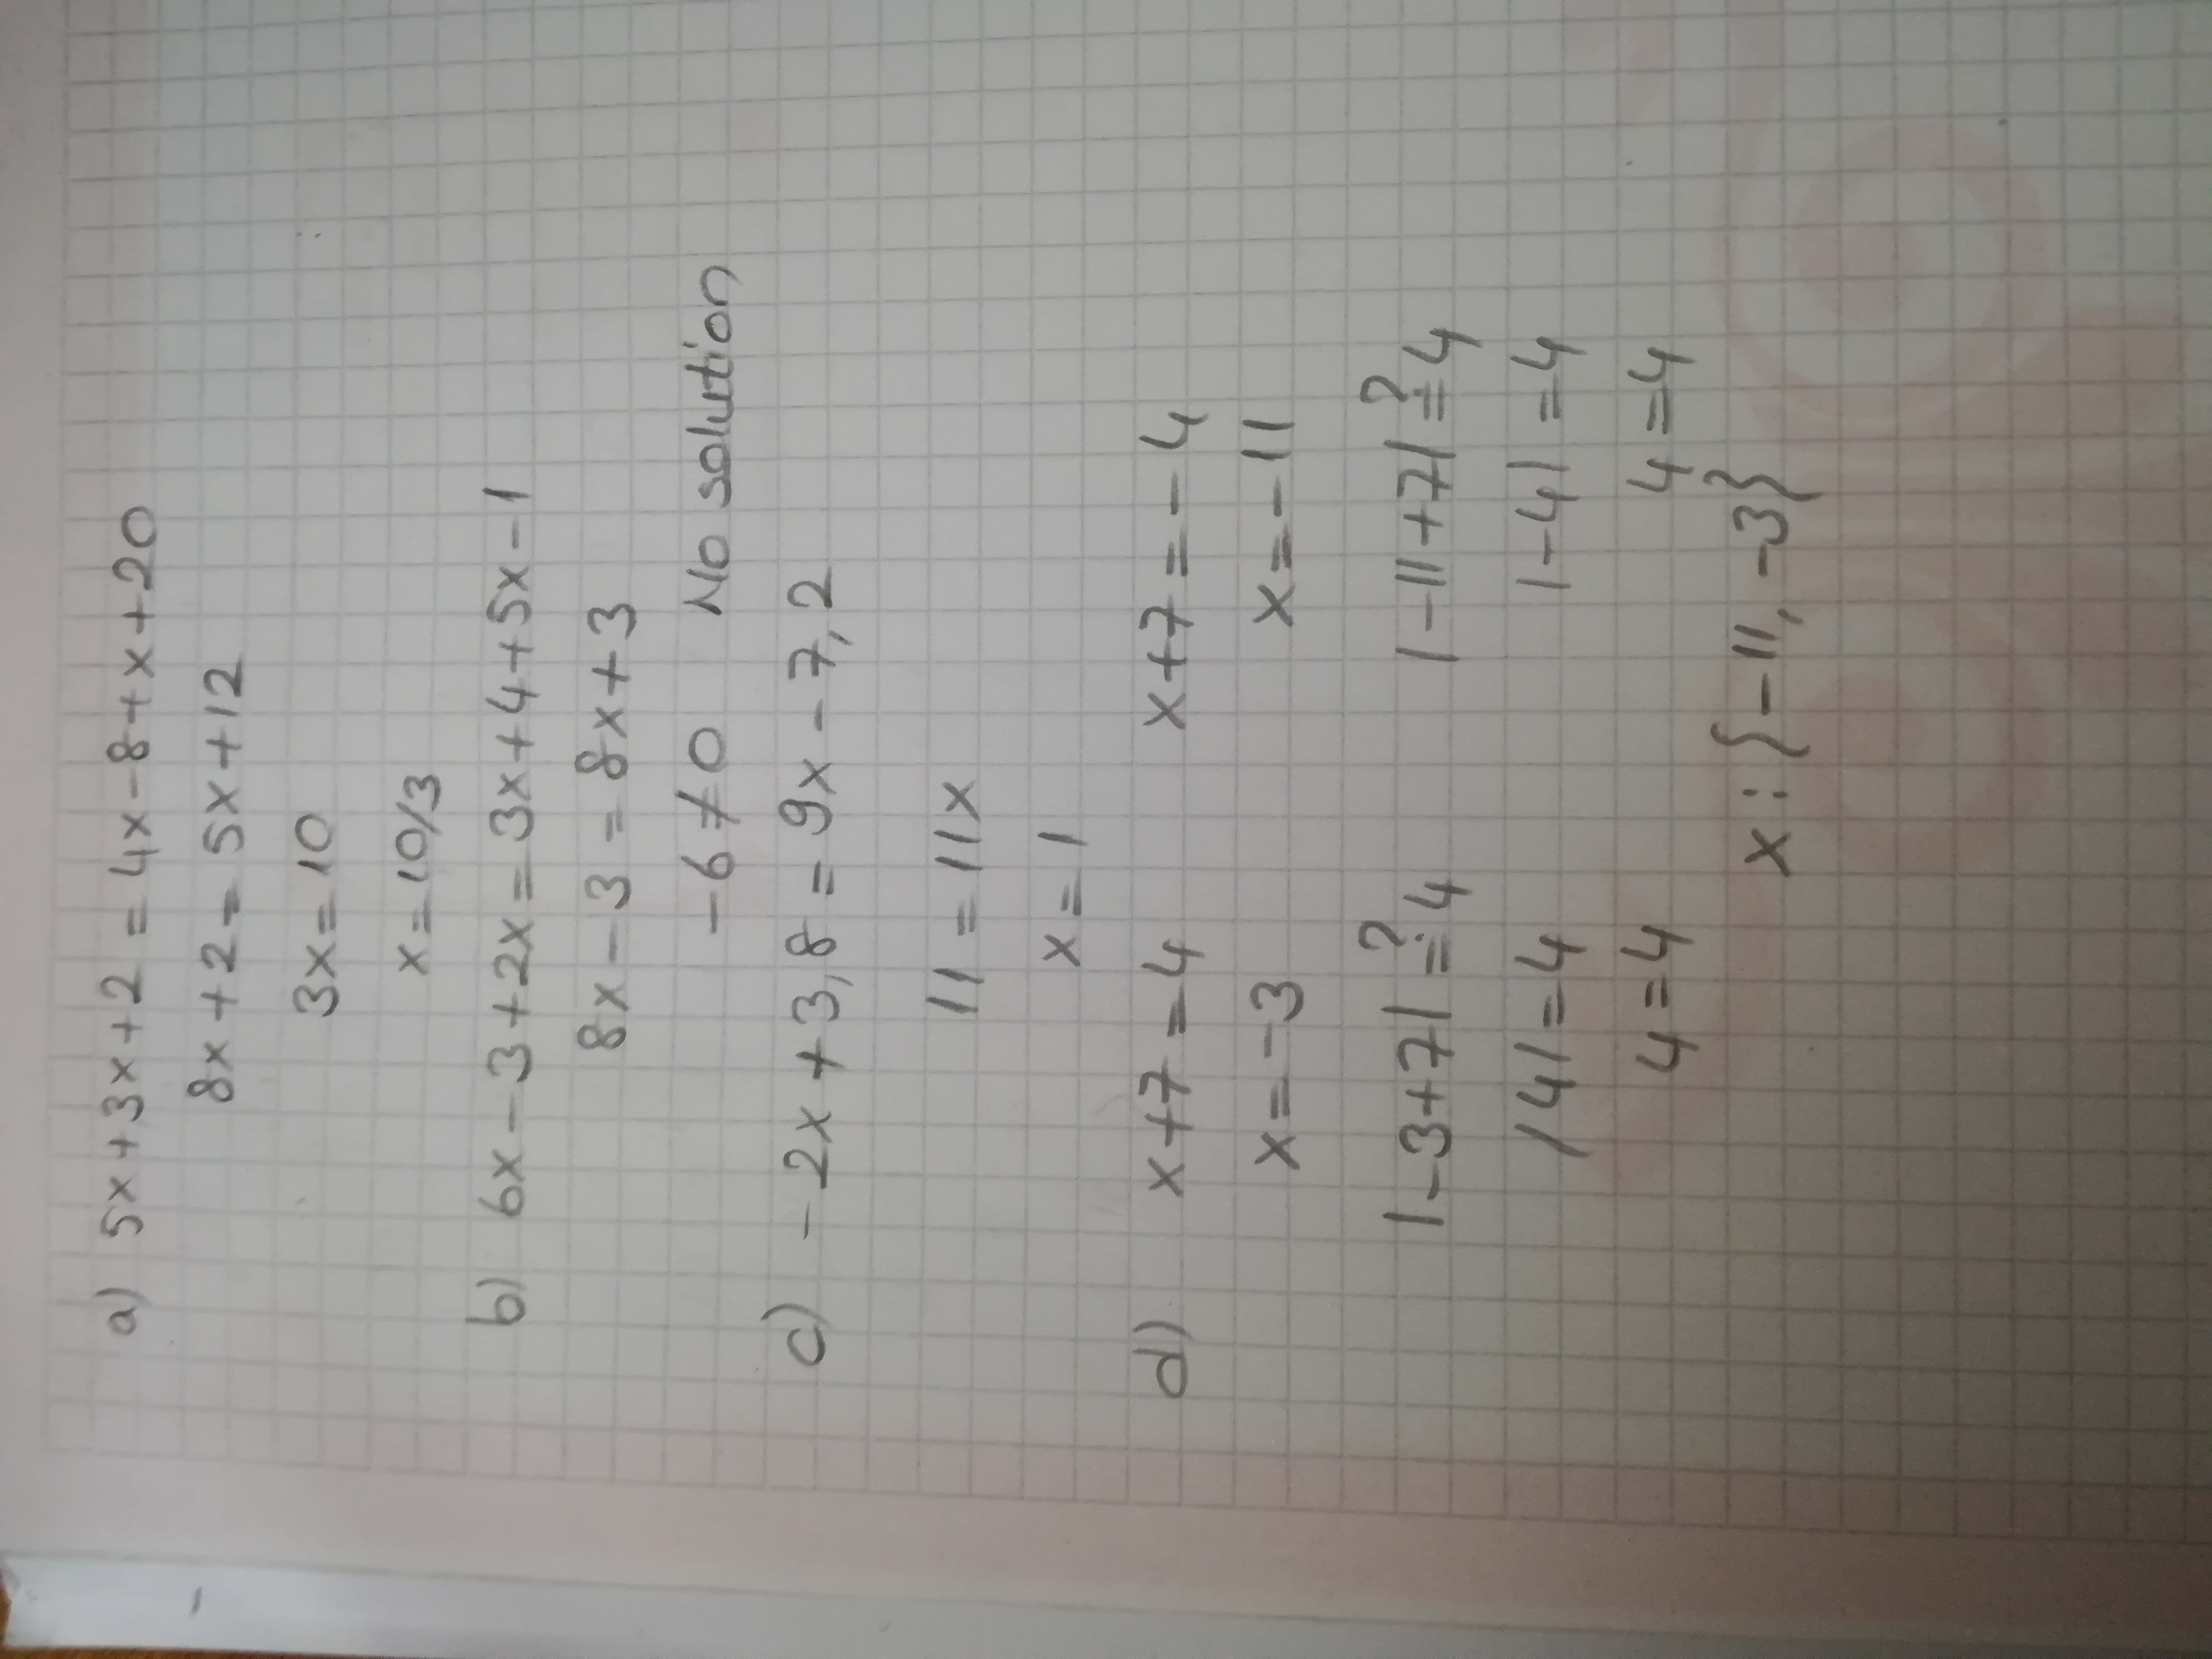 a) 5x+3x+2 = 4x-8+x+20
8x+2=5x+12
3x=10
x=10/3
b) 6x-3+2x=3x+4+5x-1
8x-3=8x+3
-6≠0 No solution
c) -2x+3,8=9x-7,2
11=11x
x=1
d) x+7=4 x+7=-4
x=-3 x=-11
|-3+7|≟4 |-11+7|≟4
|4|=4 |-4|=4
4=4 4=4
x:{-11,-3}